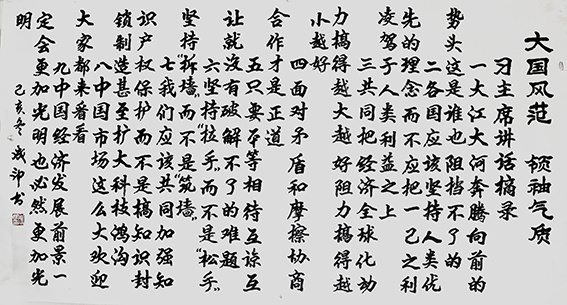 大国风范 领袖气质
习主席讲话摘录
一大江大河奔腾向前的
势头这是谁也阻挡不了的
二各国应该坚持人类优
先的理念而不应把一己之利
凌驾于人类利益之上
三共同把经济全球化动
力搞得越大越好阻力搞得越
小越好
四面对矛盾和摩擦协商
合作才是正道
五只要平等相待互谅互
让就没有破解不了的难题
六坚持“拉手”而不是“松手”
坚持“拆墙”而不是“筑墙”
七我们应该共同加强知
识产权保护而不是搞知识封
锁制造甚至扩大科技鸿沟
八中国市场这么大欢迎
大家都来看看
九中国经济发展前景一
定会更加光明也必然更加光
明
己亥冬 成印书